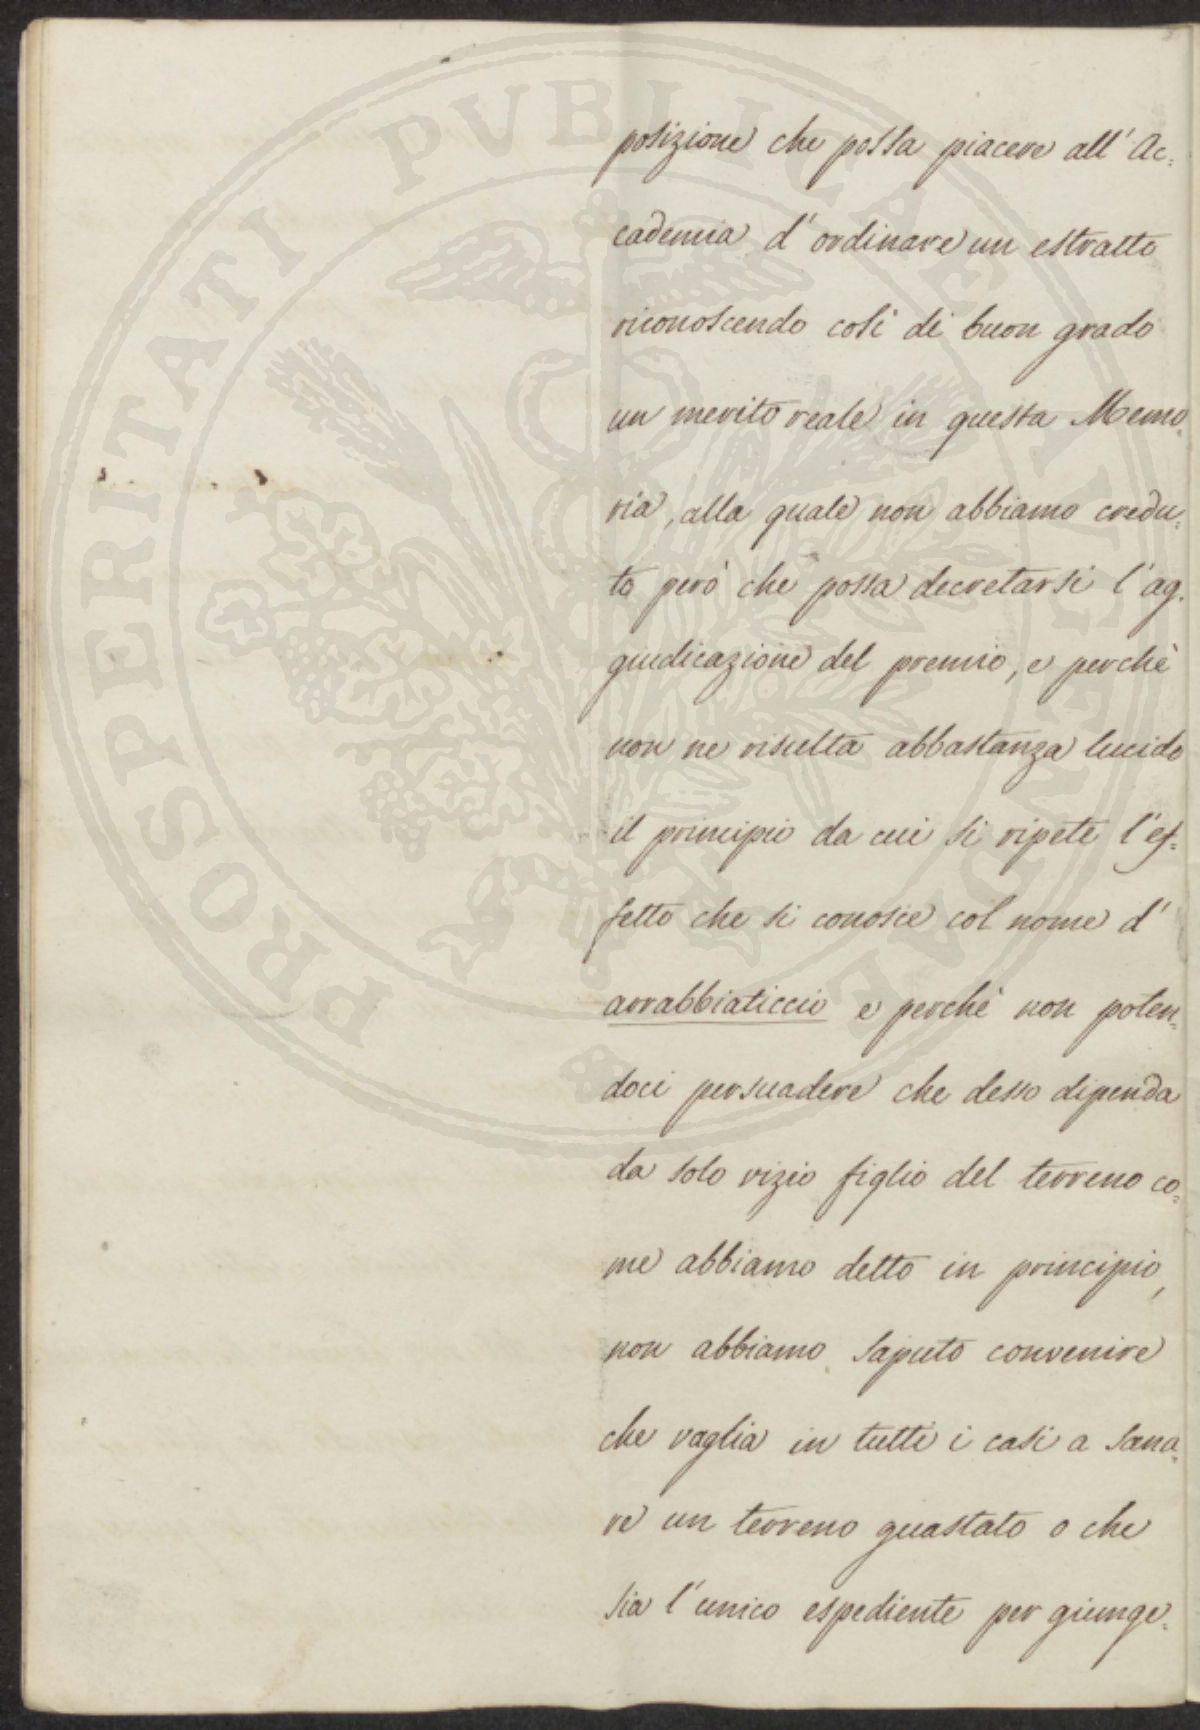 posizione che possa piacere all' Ac=
cademia d' ordinare un estratto
riconoscendo così di buon grado
un merito reale in questa Memo=
ria, alla quale non abbiamo credu=
to però che possa decretarsi l' ag=
giudicazione del premio, e perchè
non ne risulta abbastanza lucido
il principio da cui si ripete l' ef=
fetto che si conosce col nome d'
arrabbiaticcio e perchè non poten=
doci persuadere che desso dipenda
da solo vizio figlio del terreno co=
me abbiamo detto in principio,
non abbiamo saputo convenire
che vaglia in tutti i casi a sana=
re un terreno guastato o che
sia l' unico espediente per giunge=
PROSPERITATI PVBLICAE AVGENDAE